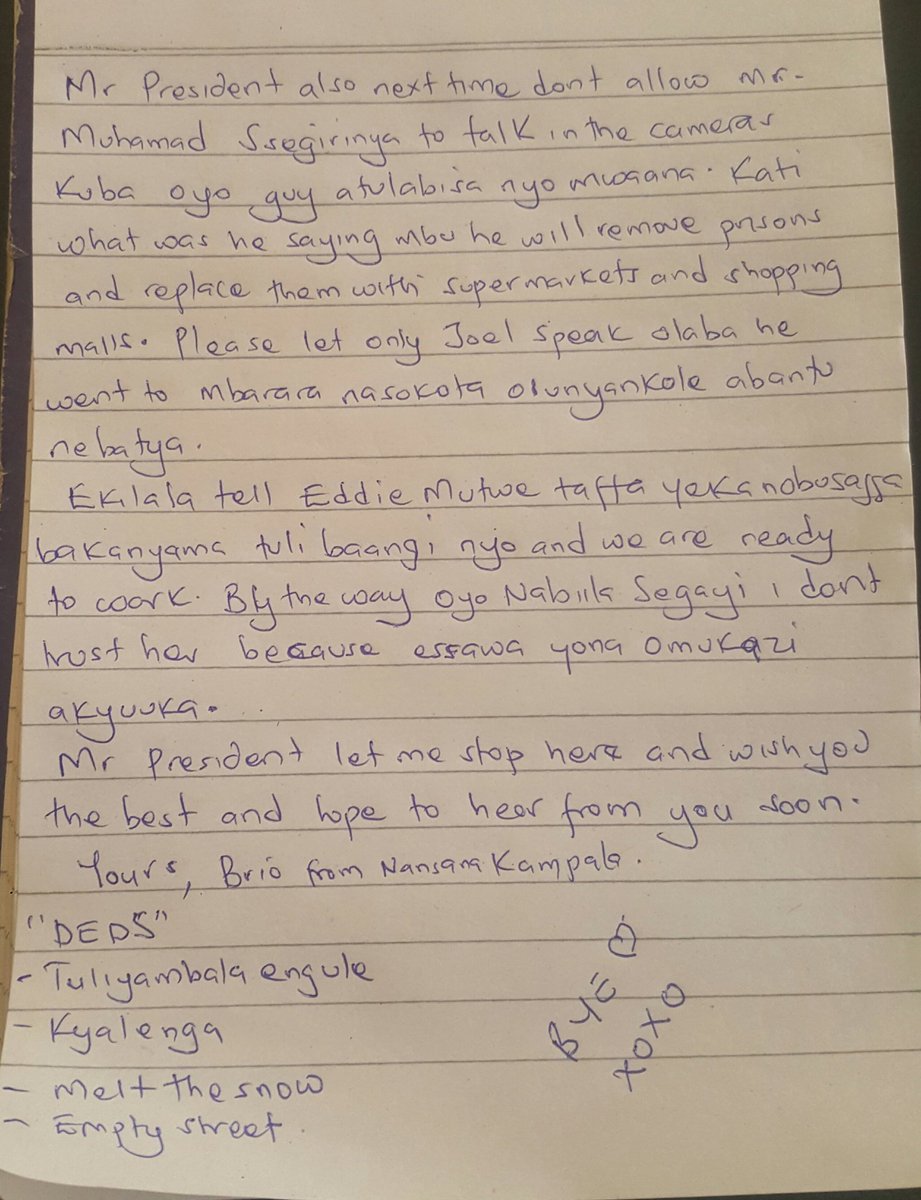 Mr President also next time dont allow Mr-
Muhamad Ssegirinya to talk in the cameras
Kuba oyo guy atulabisa nyo mwaana. Kati
what was he saying mbu he will remove prisons
and replace them with supermarkets and shopping
malls. Please let only Joel speak olaba he
went to Mbarara nasokota olunyankole abantu
nebatya.
Ekilala tell Eddie Mutwe taffa yekanobusagga
bakanyama tuli baangi nyo and we are ready
to work. By the way oyo Nabiila Segayi i dont
trust her because essawa yona omukazi
akyuuka.
Mr President let me stop here and wish you
the best and hope to hear from you soon.
Yours, Brio from Nansana Kampala.
"DEDS"
- Tuliyambala engule
- Kyalenga
- Melt the snow
- Empty street.
BYE
XOXO